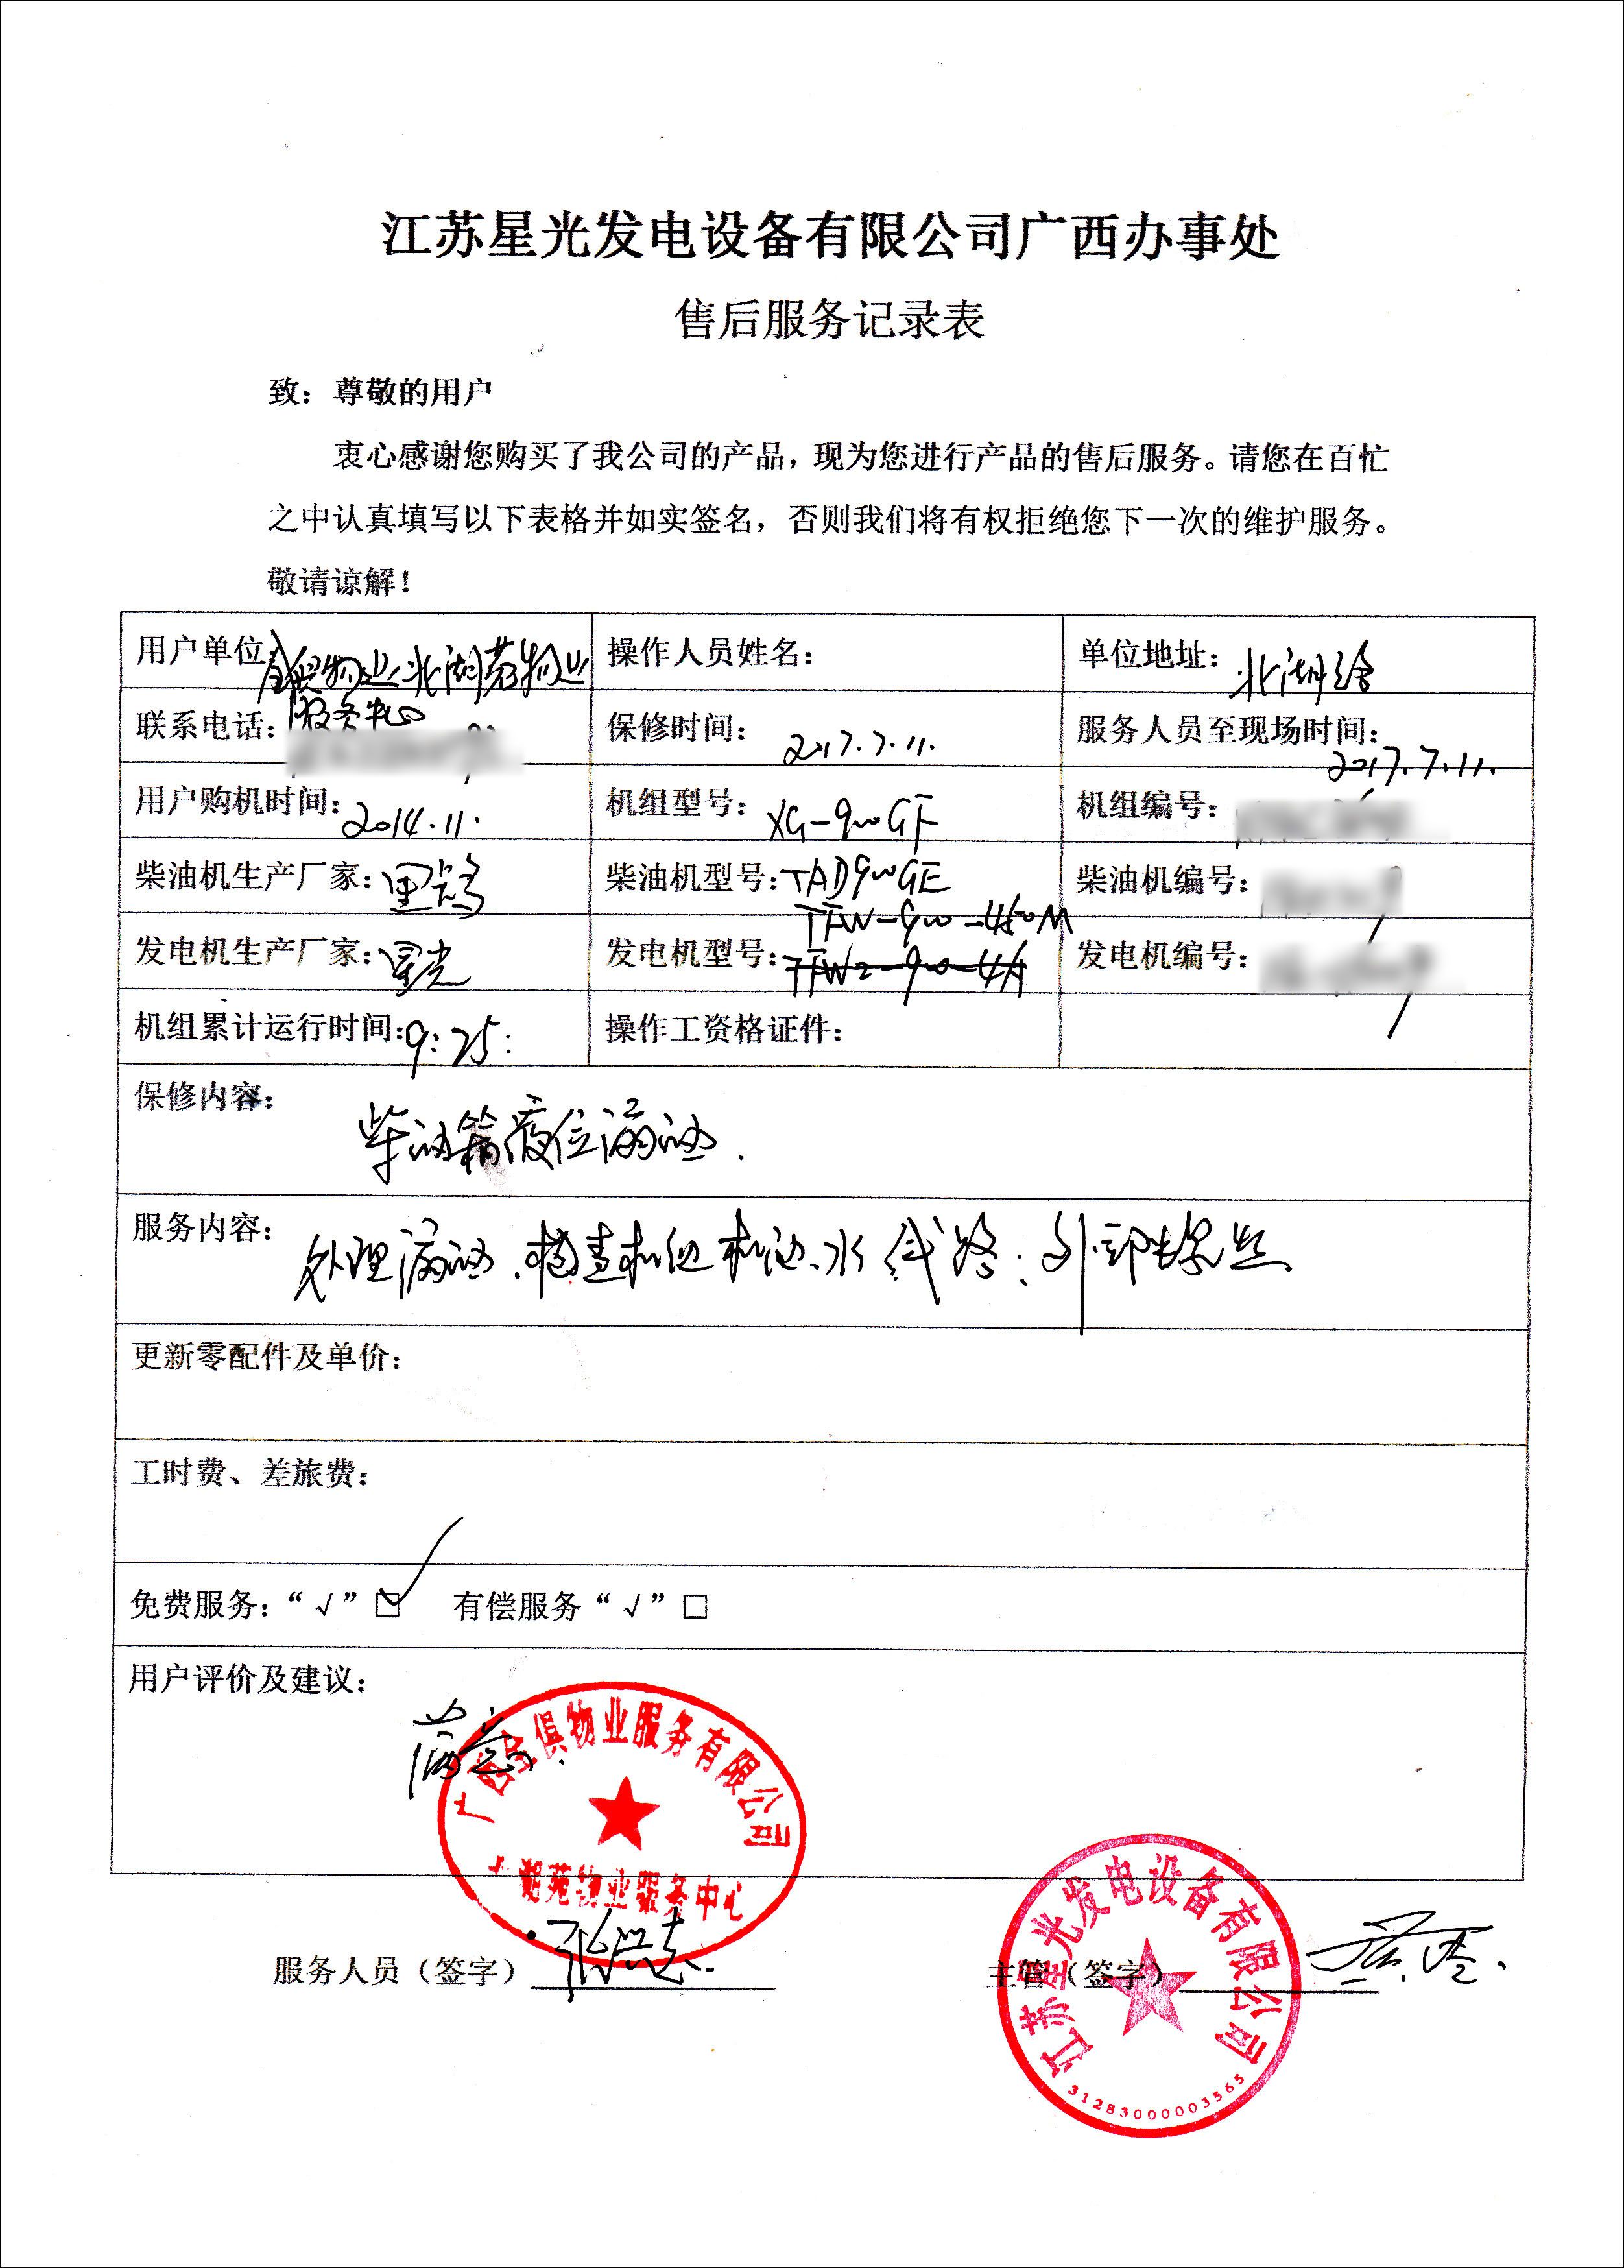 江苏星光发电设备有限公司广西办事处
售后服务记录表
致：尊敬的用户
衷心感谢您购买了我公司的产品，现为您进行产品的售后服务。请您在百忙
之中认真填写以下表格并如实签名，否则我们将有权拒绝您下一次的维护服务。
敬请谅解！
用户单位： 物业北湖苑物业服务中心 操作人员姓名： 单位地址：北湖路
联系电话： 保修时间：2017.7.11. 服务人员至现场时间：2017.7.11.
用户购机时间：2014.11. 机组型号：XG-900GF 机组编号：
柴油机生产厂家： 柴油机型号：TAD900GE 柴油机编号：
发电机生产厂家：星光 发电机型号：TFW-900-450M TFW2-900-4A 发电机编号：
机组累计运行时间：9:25: 操作工资格证件：
保修内容：
柴油箱液位漏油.
服务内容：
处理漏油、检查机组机油、水、线路；外部螺丝.
更新零配件及单价：
工时费、差旅费：
免费服务：“√”☑ 有偿服务“√”□
用户评价及建议：
满意.
广西金俱物业服务有限公司
湖苑物业服务中心
服务人员（签字）
主管（签字）
江苏星光发电设备有限公司
31283000003565